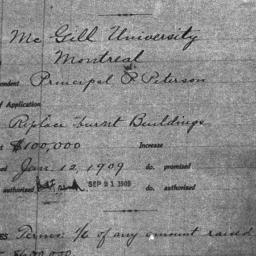 Mc Gill University
Montreal
ondent Principal P. Peterson
of Application
Replace burnt Buildings
nt $100,000 Increase
ed Jan 12, 1909 do. promised
authorized SEP 21 1909 do. authorized
ES Terms: 1/6 of any amount raised